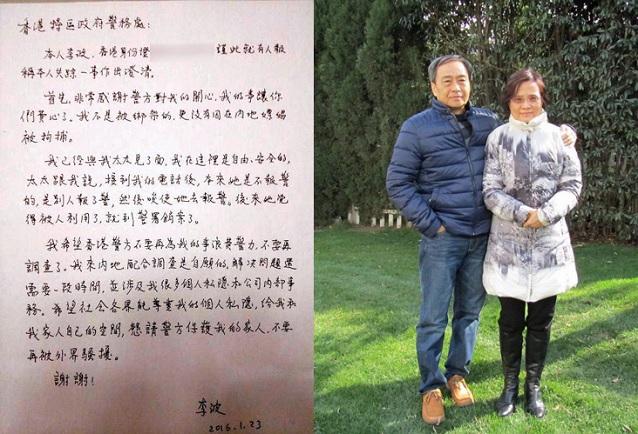 香港特區政府警務處:
本人李波,香港身份證 謹此就有人報
稱本人失踪一事作出澄清。
首先,非常感謝警方對我的關心。我的事讓你
們費心了。我不是被綁架的,更沒有因在內地嫖娼
被拘捕。
我已經與我太太見了面,我在這裡是自由、安全的,
太太跟我說,接到我的電話後,本來她是不報警
的,是別人報了警,然後唆使她去報警。後來她覺
得被人利用了,就到警署銷案了。
我希望香港警方不要再為我的事浪費警力,不要再
調查了。我來內地配合調查是自願的,解決問題還
需要一段時間,並涉及我很多個人私隱和公司內部事
務。希望社會各界能尊重我的個人私隱,給我和
我家人自己的空間,懇請警方保護我的家人,不要
再被外界騷擾。
謝謝!
李波
2016.1.23